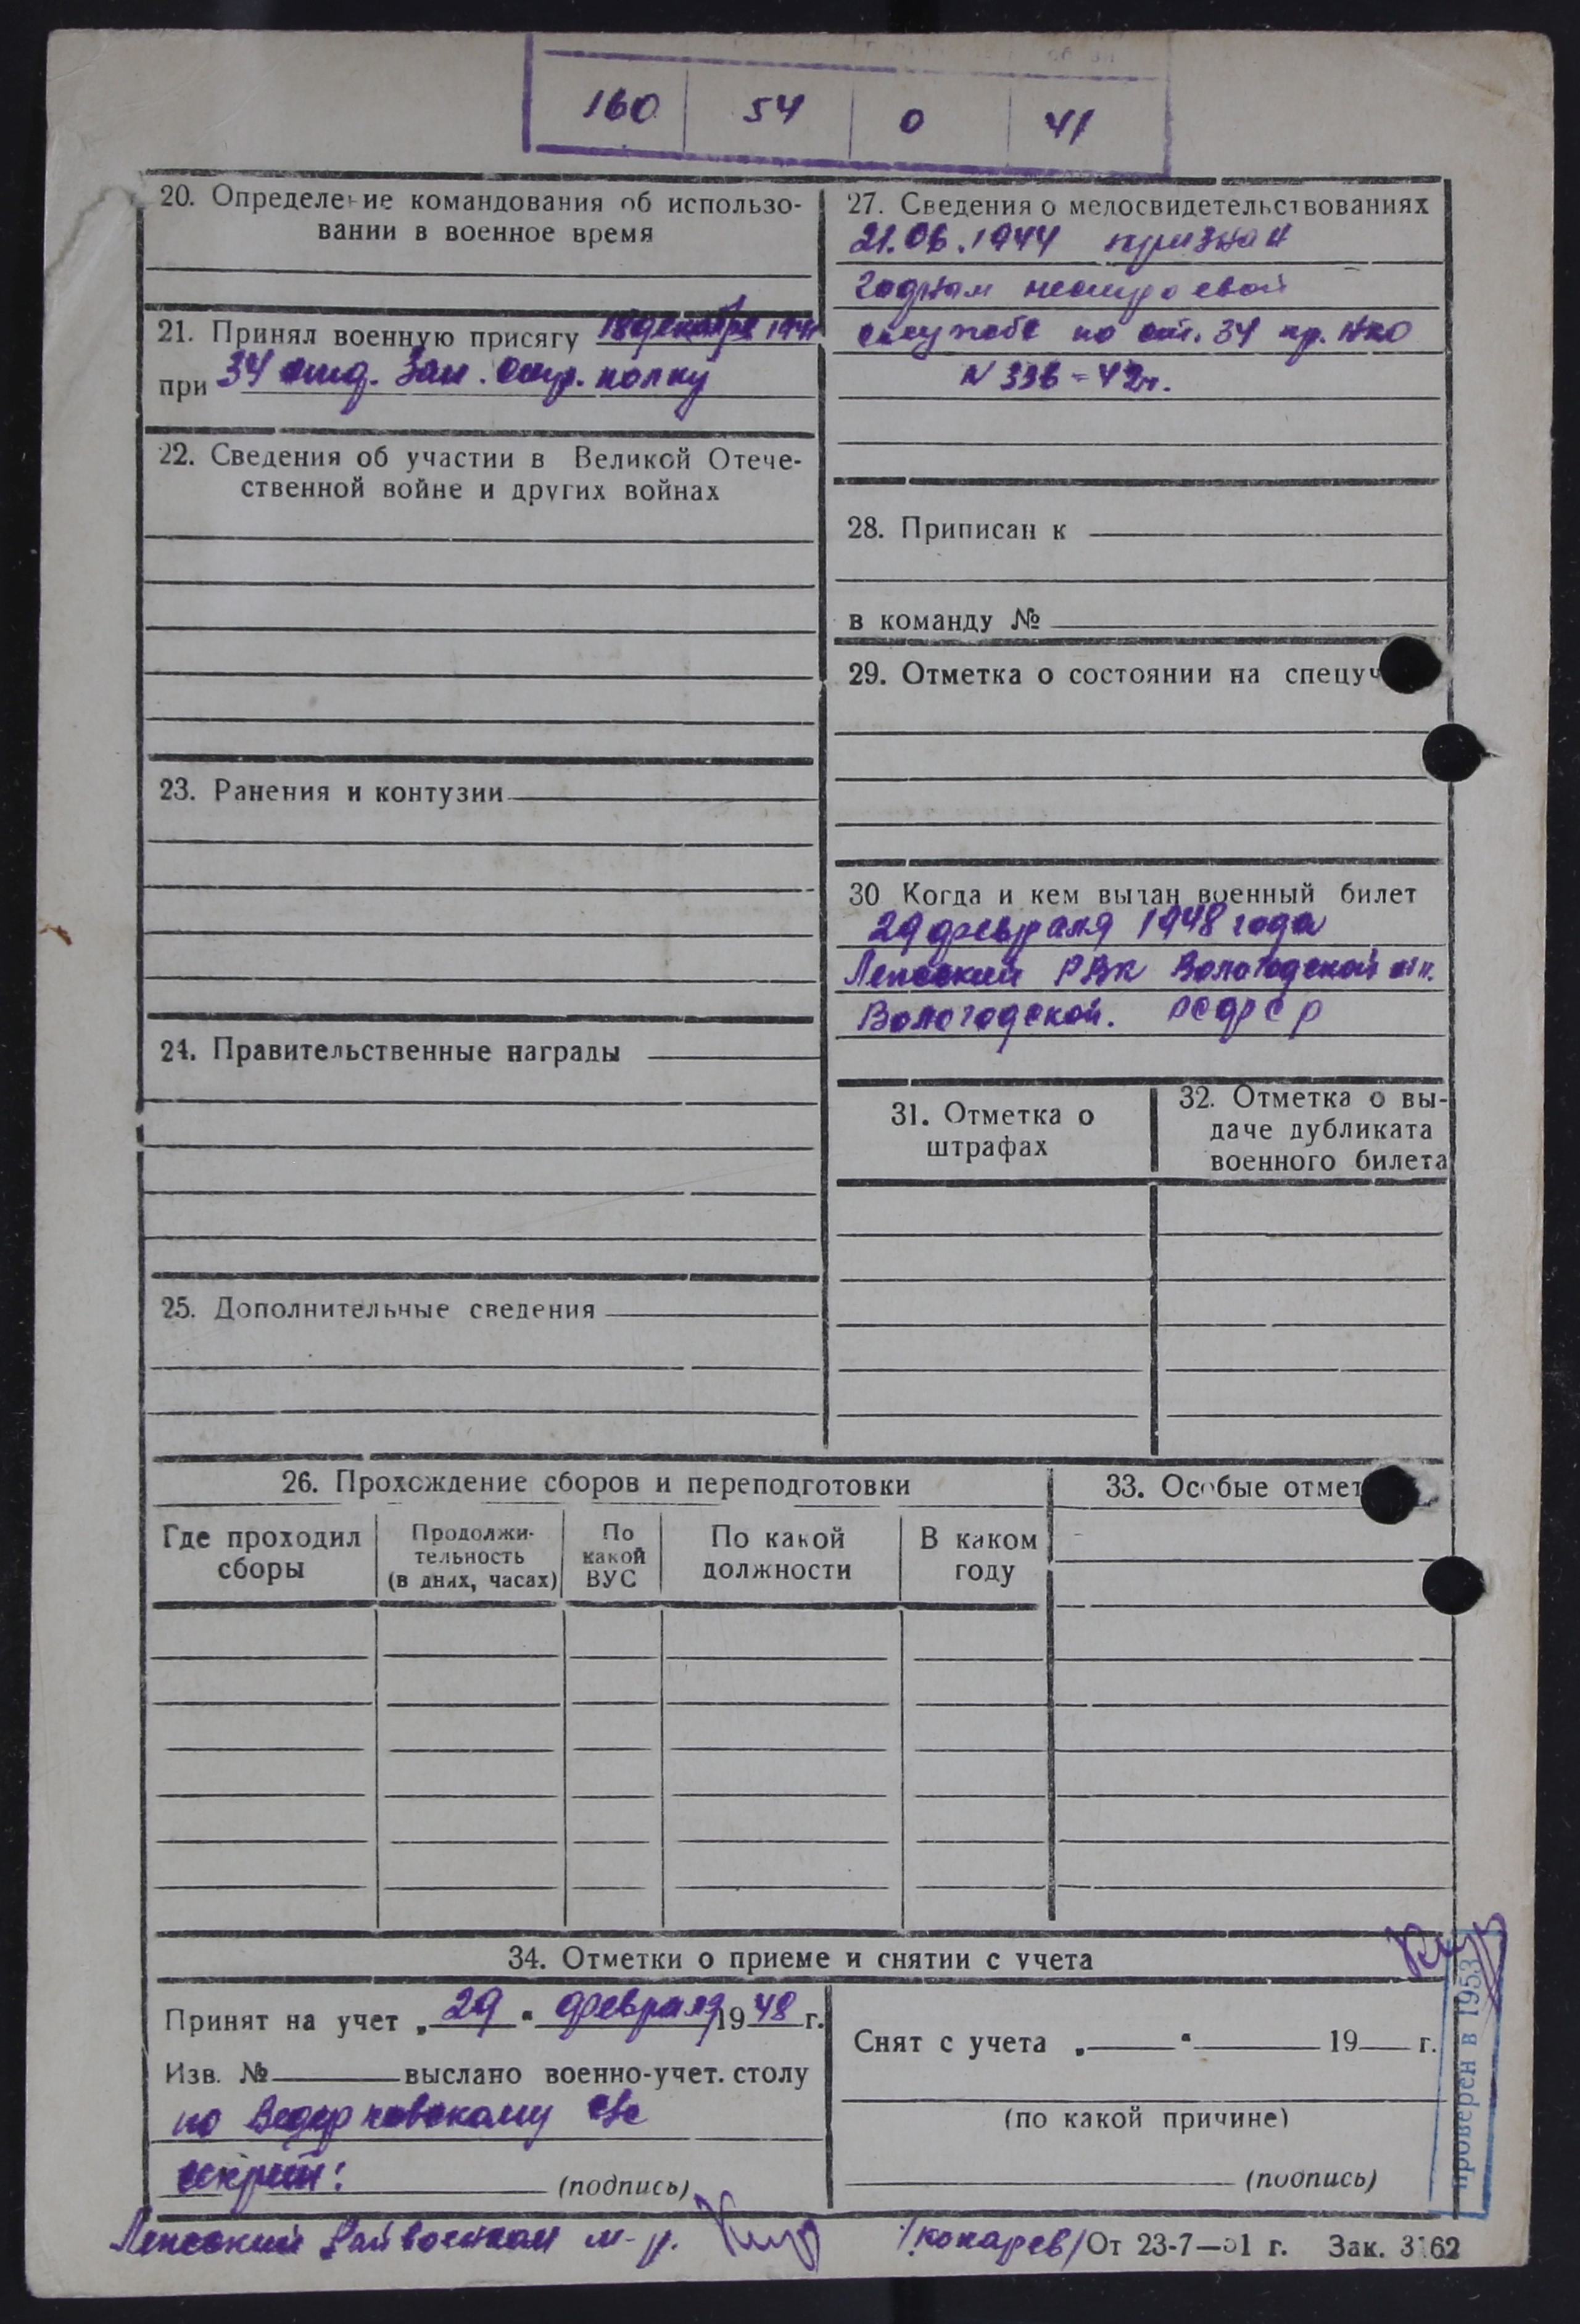 160 54 0 41
20. Определение командования об использо-
вании в военное время
21. Принял военную присягу 18 декабря 1941
при 34 отд. Зап. стр. полку
22. Сведения об участии в Великой Отече-
ственной войне и других войнах
23. Ранения и контузии
24. Правительственные награды
25. Дополнительные сведения
27. Сведения о медосвидетельствованиях
21.06.1944 признан
годным нестроевой
службе по ст. 34 пр. НКО
N 336-42г.
28. Приписан к
в команду №
29. Отметка о состоянии на спецуч
30 Когда и кем выдан военный билет
29 февраля 1948 года
РВК Вологодской обл.
Вологодской. РСФСР
31. Отметка о
штрафах
32. Отметка о вы-
даче дубликата
военного билета
26. Прохождение сборов и переподготовки
Где проходил
сборы
Продолжи-
тельность
(в днях, часах)
По
какой
ВУС
По какой
должности
В каком
году
33. Особые отмет
34. Отметки о приеме и снятии с учета
Принят на учет „29" февраля 1948 г.
Изв. № выслано военно-учет. столу
по с/с
(подпись)
Снят с учета „ " 19 г.
(по какой причине)
(подпись)
Проверен в 1953
Райвоенком м-р.
/Кокарев/ От 23-7—51 г. Зак. 3162